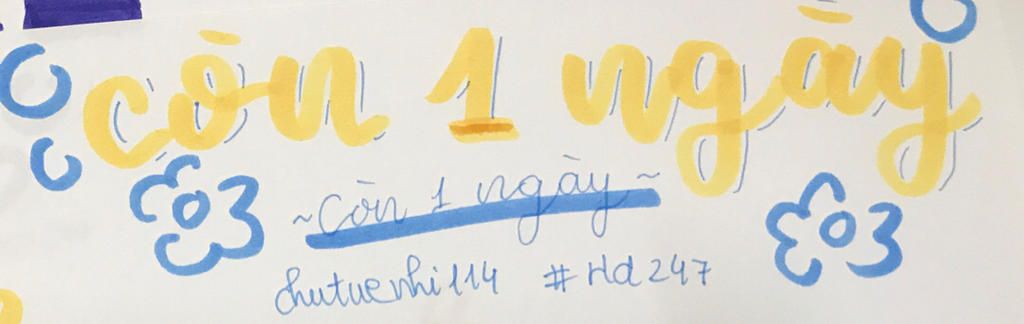 còn 1 ngày
~ còn 1 ngày ~
chutuenhi114 #Hd247